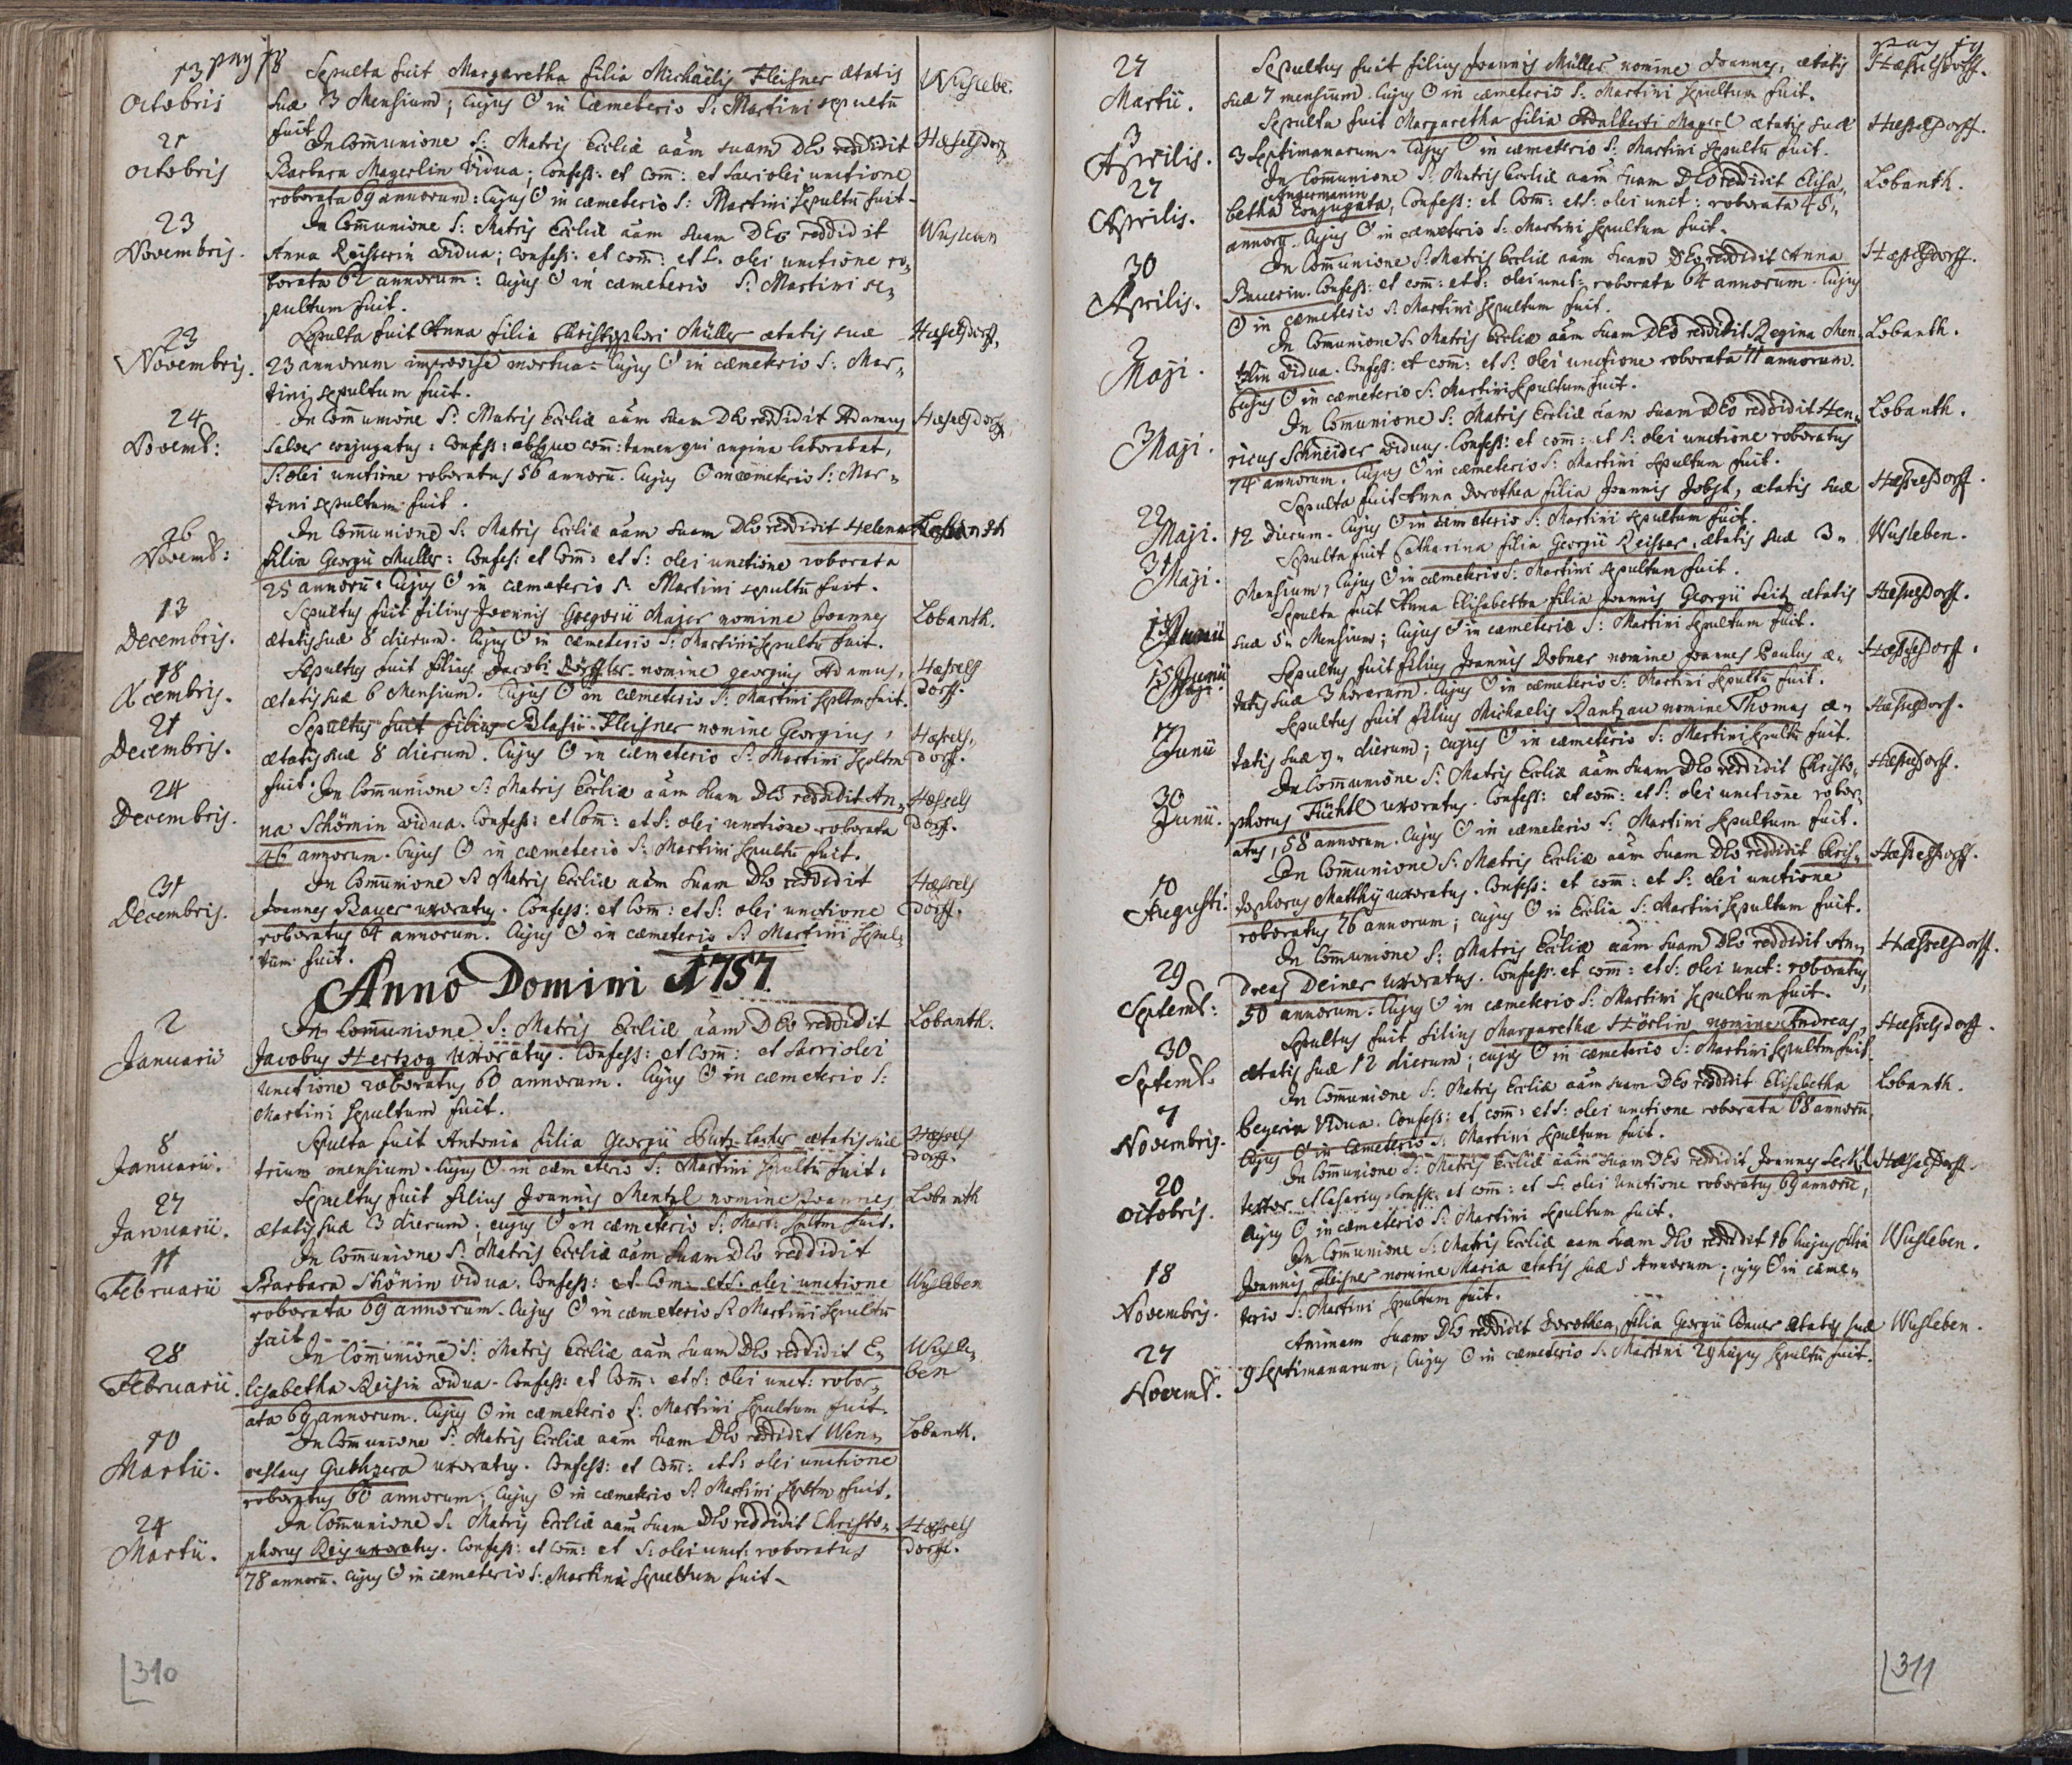 pag 18
13
Octobris
Sepulta fuit Margaretha filia Michaëlis Fleisner ætatis
suæ 3 Mensium; Cujus O in Cæmeterio S: Martini sepultū
fuit
Wuslebe.
21
octobris
In Com̄unione S: Matris Eccliæ aām suam DEo reddidit
Barbara Magerlin Vidua; Confess: et com̄: et sacri olei unctione
roborata 69 annorum: Cujus O in cæmeterio S: Martini sepultū fuit.
Hæselsdorf
23
Novembris.
In Com̄unione S: Matris Eccliæ aām suam DEo reddidit
Anna Reisserin vidua; confess: et com̄: et S. olei unctione ro,
borata 62 annorum: Cujus O in cæmeterio S: Martini se,
pultum fuit.
Wusleben
23
Novembris.
Sepulta fuit Anna filia Christophori Müller ætatis suæ
23 annorum improvise mortua. Cujus O in cæmeterio S: Mar,
tini sepultum fuit.
Hæselsdorff.
24
Novemb:
In Com̄unione S: Matris Eccliæ aām suam DEo reddidit Adamus
Salver conjugatus: Confess: absque com̄: tamen qui angina laborabat,
S: olei unctione roboratus 56 annorū. Cujus O in cæmeterio S: Mar,
tini sepultum fuit.
Hæselsdorff
26
Novemb:
In Com̄unione S: Matris Eccliæ aām suam DEo reddidit Helena
filia Georgii Muller: Confes: et Com̄: et S: olei unctione roborata
25 annorū: Cujus O in cæmeterio S: Martini sepultū fuit.
13
Decembris.
Sepultus fuit filius Joannis Gregorii Majer nomine Joannes
ætatis suæ 8 dierum. Cujus O in cæmeterio S: Martini sepultū fuit.
Lobanth.
18
Decembris.
Sepultus fuit filius Jacobi Löffler nomine georgius Adamus,
ætatis suæ 6 Mensium. Cujus O in cæmeterio S: Martini sepltm fuit.
Hæsels
dorf.
21
Decembris.
Sepultus fuit filius Blasii Fleisner nomine Georgius,
ætatis suæ 8 dierum. Cujus O in cæmeterio S: Martini sepltm
fuit.
Hæsels,
dorf.
24
Decembris.
In Com̄unione S: Matris Eccliæ aām suam DEo reddidit An,
na Schömin vidua. Confess: et Com̄: et S: olei unctione roborata
46 annorum. Cujus O in cæmeterio S: Martini sepultū fuit.
Hæssels
dorf.
31
Decembris.
In Com̄unione S: Matris Eccliæ aām suam DEo reddidit
Joannes Bauer uxoratus. Confess: et Com̄: et S: olei unctione
roboratus 64 annorum. Cujus O in cæmeterio S: Martini sepul,
tum fuit.
Hæssels
dorff.
Anno Domini 1757.
2
Januarii
In Com̄unione S: Matris Eccliæ aām DEo reddidit
Jacobus Hertzog Uxoratus. Confess: et Com̄: et sacri olei
Unctione roboratus 60 annorum. Cujus O in cæmeterio S:
Martini sepultum fuit.
Lobanth.
8
Januarii.
Sepulta fuit Antonia filia Georgii ætatis suæ
trium mensium. Cujus O in cæmeterio S: Martini sepultū fuit.
Hæssels
dorff.
27
Januarii.
Sepultus fuit filius Joannis Mentzl nomine Joannes
ætatis suæ 3 dierum; cujus O in cæmeterio S: Mart: sepltm fuit.
Lobanth
11
Februarii
In Com̄unione S: Matris Eccliæ aām suam DEo reddidit
Barbara Schönin vidua. Confess: et Com̄: et S: olei unctione
roborata 69 annorum. Cujus O in cæmeterio S: Martini sepultū
fuit
Wusleben
28
Februarii.
In Com̄unione S: Matris Eccliæ aām suam DEo reddidit E,
lisabetha Reisin vidua. Confess: et Com̄: et S: olei unct: robor,
ata 69 annorum. Cujus O in cæmeterio S: Martini sepultum fuit.
Wusle,
ben
10
Martii.
In Com̄unione S: Matris Eccliæ aām suam DEo reddidit Wen,
ceslaus uxoratus. Confess: et Com̄: et S: olei unctione
roboratus 60 annorum; Cujus O in cæmeterio S: Martini sepltm fuit.
Lobanth.
24
Martii.
In Com̄unione S: Matris Eccliæ aām suam DEo reddidit Christo,
phorus Reis uxoratus. Confess: et Com̄: et S: olei unct: roboratus
78 annorū. Cujus O in cæmeterio S: Martini sepultum fuit.
Hæssels
dorff.
310
pag 19
27
Martii.
Sepultus fuit filius Joannis Müller nomine Joannes, ætatis
suæ 7 mensium. Cujus O in cæmeterio S. Martini sepultum fuit.
Hæsselsdorff.
3
Aprilis.
Sepulta fuit Margaretha filia Adalberti Magerl ætatis suæ
3 septimanarum. Cujus O in cæmeterio S: Martini sepultū fuit.
Hæsselsdorff.
27
Aprilis.
In Com̄unione S: Matris Eccliæ aām suam DEo reddidit Elisa,
Angermanin
betha conjugata, Confess: et Com̄: et S: olei unct: roborata 45,
annorū. Cujus O in cæmeterio S: Martini sepultum fuit.
Lobanth.
30
Aprilis.
In Com̄unione S: Matris Eccliæ aām suam DEo reddidit Anna
Bauerin. Confess: et com̄: et S: olei unct: roborata 64 annorum. Cujus
O in cæmeterio S: Martini sepultum fuit.
Hæsselsdorff.
2
Maji.
In Com̄unione S: Matris Eccliæ aām suam DEo reddidit Regina Men,
tzlin vidua. Confess: et com̄: et S: olei unctione roborata 71 annorum.
Cujus O in cæmeterio S: Martini sepultum fuit.
Lobanth.
3
Maji.
In Com̄unione S: Matris Eccliæ aām suam DEo reddidit Hen,
ricus Schneider viduus. Confess: et com̄: et S: olei unctione roboratus
74 annorum. Cujus O in cæmeterio S: Martini sepultum fuit.
Lobanth.
22
Maji.
Sepulta fuit Anna Dorothea filia Joannis Jobst, ætatis suæ
12 dierum. Cujus O in cæmeterio S: Martini sepultum fuit.
Hæsselsdorff.
31
Maji.
Sepulta fuit Catharina filia Georgii Reisser, ætatis suæ 3,
Mensium; Cujus O in cæmeterio S: Martini sepultum fuit.
Wusleben.
Junii
Sepulta fuit Anna Elisabetha filia Joannis Georgii Leitz ætatis
suæ 5 Mensium; Cujus O in cæmeterio S: Martini sepultum fuit.
Hæsselsdorff.
15 Junii
Sepultus fuit filius Joannis Dobner nomine Joannes Paulus æ,
tatis suæ 3 horarum. Cujus O in cæmeterio S: Martini sepultū fuit.
Hæsselsdorff.
17
Junii
Sepultus fuit filius Michaelis Rantzau nomine Thomas æ,
tatis suæ 9 dierum; cujus O in cæmeterio S: Martini sepultū fuit.
Hæsselsdorf.
30
Junii.
In Com̄unione S: Matris Eccliæ aām suam DEo reddidit Christo,
phorus Füchtl uxoratus. Confess: et com̄: et S: olei unctione robor,
atus, 58 annorum. Cujus O in cæmeterio S: Martini sepultum fuit.
Hæsselsdorff.
10
Augusti.
In Com̄unione S: Matris Eccliæ aām suam DEo reddidit Chris,
tophorus Matthy uxoratus. Confess: et com̄: et S: olei unctione
roboratus 76 annorum; cujus O in Ecclia S: Martini sepultum fuit.
Hæsselsdorff.
29
Septemb:
In Com̄unione S: Matris Eccliæ aām suam DEo reddidit An,
dreas Deiner uxoratus. Confess: et com̄: et S: olei unct: roboratus,
50 annorum. Cujus O in cæmeterio S: Martini sepultum fuit.
Hæsselsdorff.
30
Septemb.
Sepultus fuit filius Margarethæ Hörlin nomine Andreas,
ætatis suæ 12 dierum; cujus O in cæmeterio S: Martini sepultm fuit.
Hæsselsdorff.
7
Novembris.
In Com̄unione S: Matris Eccliæ aām suam DEo reddidit Elisabetha
Beyerin Vidua. Confess: et com̄: et S: olei unctione roborata 68 annorū
Cujus O in cæmeterio S: Martini sepultum fuit.
Lobanth.
20
octobris.
In Com̄unione S: Matris Eccliæ aām suam DEo reddidit Joannes
textor Confess: et com̄: et S: olei Unctione roboratus 69 annorū,
Cujus O in cæmeterio S: Martini sepultum fuit.
Hæsselsdorff.
18
Novembris.
In Com̄unione S: Matris Eccliæ aam suam DEo reddidit 16 hujus filia
Joannis Fleisner nomine Maria ætatis suæ 5 Annorum; cujus O in cæme,
terio S: Martini sepultum fuit.
Wusleben.
27
Novemb.
Animam suam DEo reddidit Dorothea filia Georgii Bauer ætatis suæ
9 septimanarum; Cujus O in cæmeterio S. Martini 29 hujus sepultū fuit.
Wusleben.
311